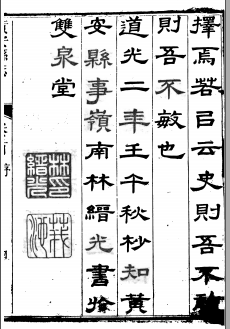 擇焉若曰云史則吾不敢
則吾不敏也
道光二年壬午秋杪知黃
安縣事嶺南林縉光書於
雙泉堂
林印
縉光